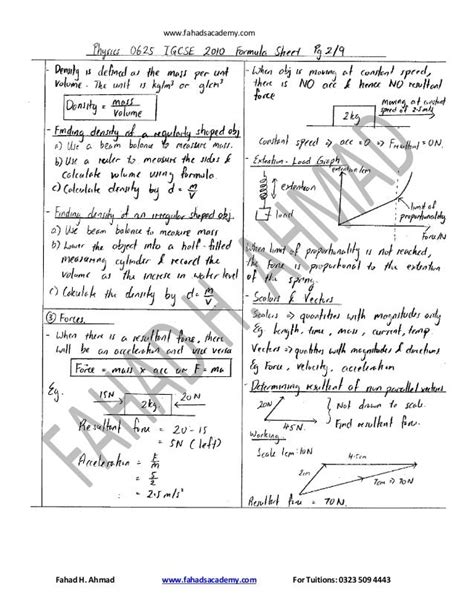 www.fahadsacademy.com
Physics 0625 IGCSE 2010 Formula Sheet Pg 2/9
- Density is defined as the mass per unit
volume. The unit is kg/m³ or g/cm³
Density = mass
volume
- Finding density of a regularly shaped obj
a) Use a beam balance to measure mass.
b) Use a ruler to measure the sides &
calculate volume using formula.
c) Calculate density by d = m
v
- Finding density of an irregular shaped obj.
a) Use beam balance to measure mass
b) Lower the object into a half-filled
measuring cylinder & record the
volume as the increase in water level
c) Calculate the density by d = m
v
③ Forces.
- When there is a resultant force, there
will be an acceleration and vice versa
Force = mass x acc or F = ma
Eg.
15N 2kg 20N
Resultant force = 20 - 15
= 5N (left)
Acceleration = F
m
= 5
2
= 2.5 m/s²
- When obj is moving at constant speed,
there is NO acc & hence NO resultant
force
moving at constant
speed of 2.5m/s
2kg
Constant speed => acc = 0 => Fresultant = 0N.
- Extention - Load Graph
extention len
extention
load
limit of
proportionality
Force/N
When limit of proportionality is not reached,
the force is proportional to the extention
of the spring.
- Scalars & Vectors
Scalars => quantities with magnitudes only
Eg length, time, mass, current, temp
Vectors => quantities with magnitudes & directions
Eg Force, velocity, acceleration
- Determining resultant of non parallel vectors
20N
45N.
Not drawn to scale.
Find resultant force.
Working.
Scale 1cm : 10N
4.5cm
2cm
7cm => 70N.
Resultant force = 70N.
FAHAD H. AHMAD
Fahad H. Ahmad www.fahadsacademy.com For Tuitions: 0323 509 4443